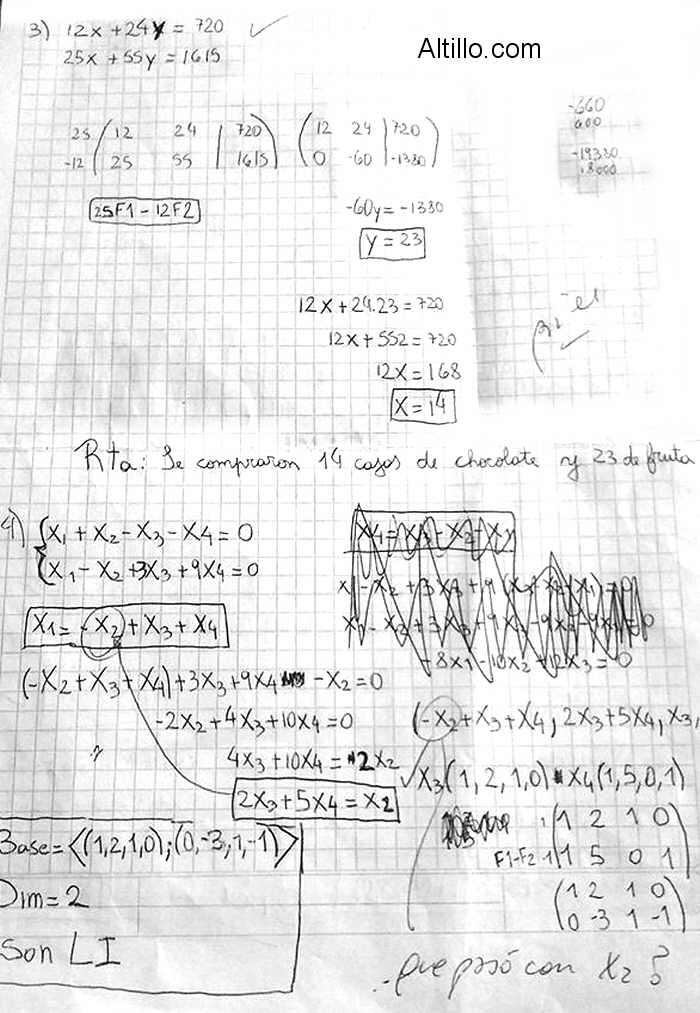 Altillo.com
3) 12x + 24y = 720 ✓
25x + 55y = 1615
25 ( 12 24 | 720 )
-12 ( 25 55 | 1615 )
( 12 24 | 720 )
( 0 -60 | -1380 )
-660
600
-19380
18000
25F1 - 12F2
-60y = -1380
y = 23
12x + 24.23 = 720
12x + 552 = 720
12x = 168
x = 14
Rta: Se compraron 14 cajas de chocolate y 23 de fruta
4) { X1 + X2 - X3 - X4 = 0
{ X1 - X2 + 3X3 + 9X4 = 0
X1 = -X2 + X3 + X4
(-X2 + X3 + X4) + 3X3 + 9X4 - X2 = 0
-2X2 + 4X3 + 10X4 = 0
4X3 + 10X4 = 2X2
2X3 + 5X4 = X2
-8X1 - 10X2 + 12X3 = 0
(-X2 + X3 + X4, 2X3 + 5X4, X3,
X3(1, 2, 1, 0) X4(1, 5, 0, 1)
( 1 2 1 0 )
F1-F2 ( 1 5 0 1 )
( 1 2 1 0 )
( 0 -3 1 -1 )
Base = <(1,2,1,0); (0,-3,1,-1)>
Dim = 2
Son LI
que pasó con X2?